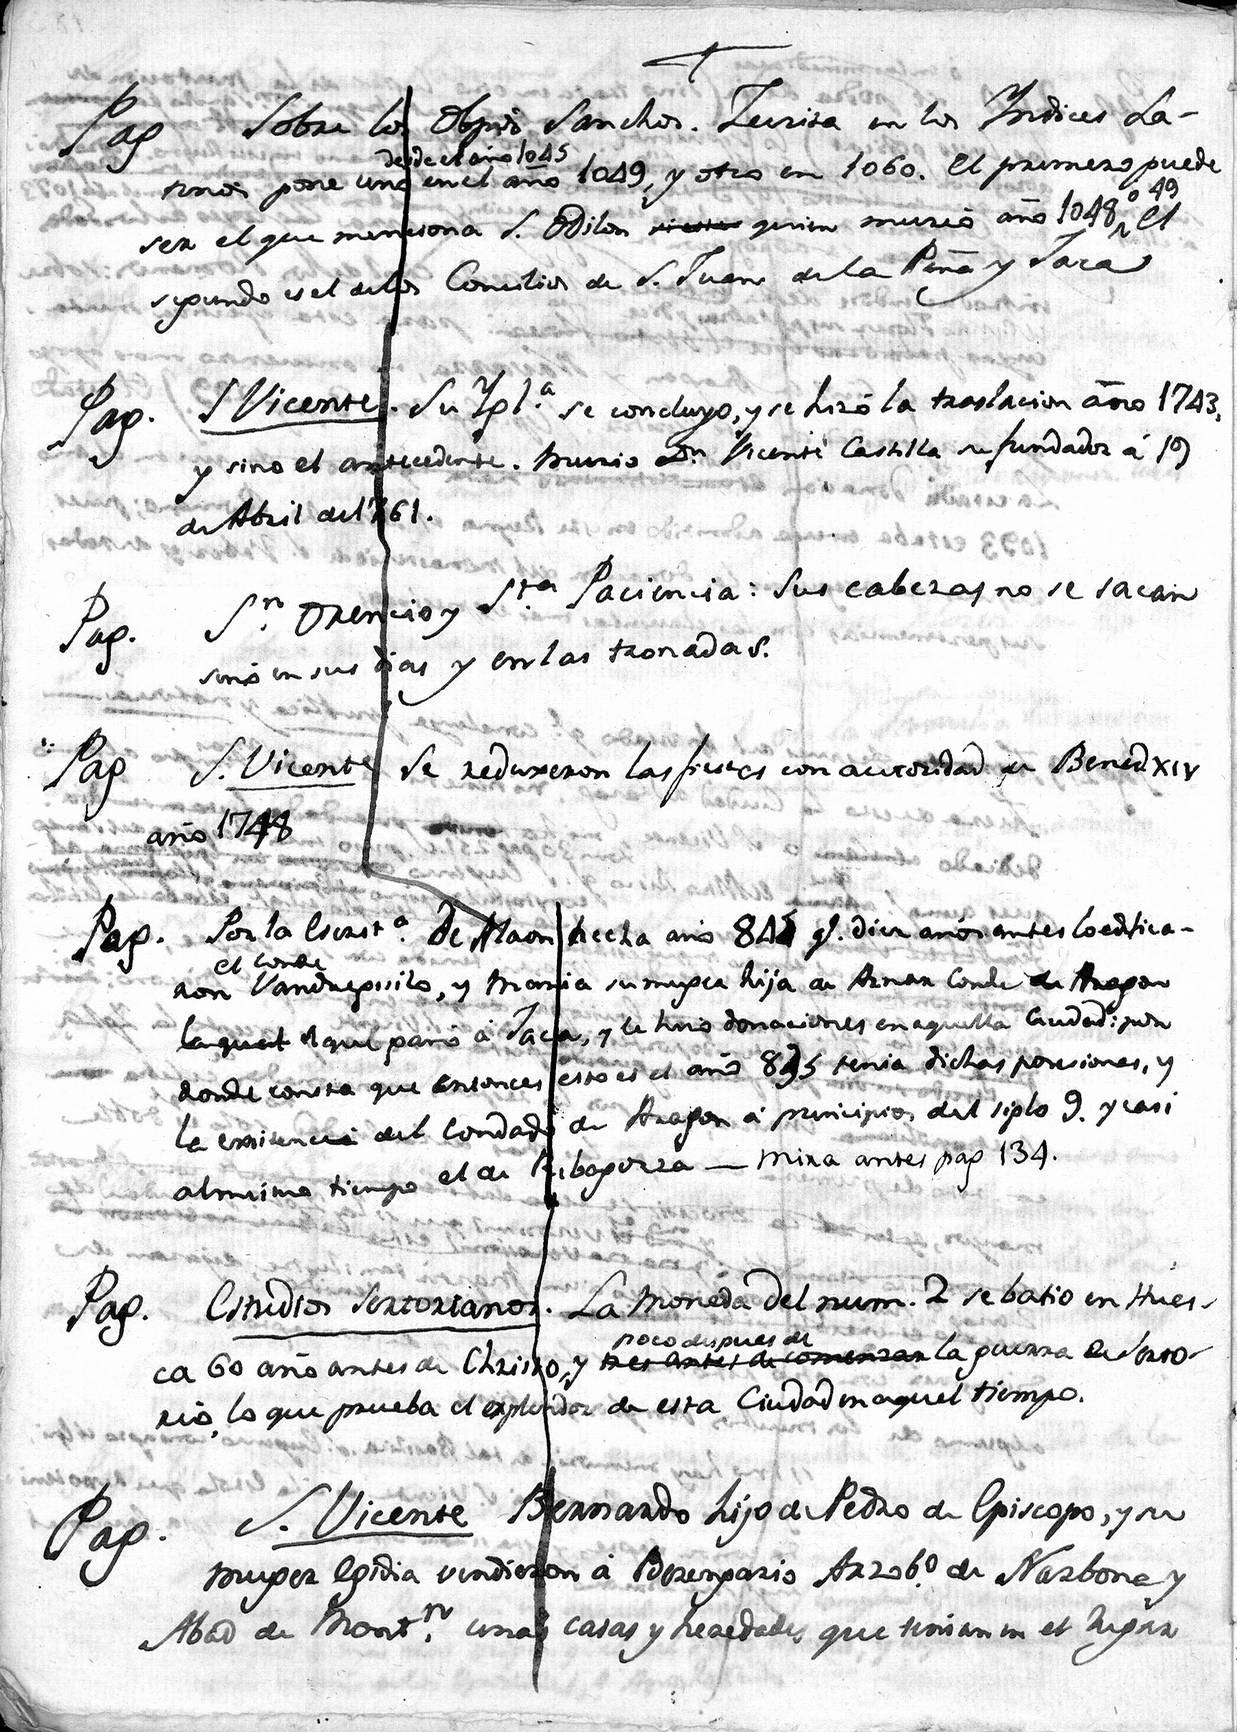 Pag Sobre los Obpõs Sanchos. Zurita en los Yndices La-
desde el año 1045
tinos pone uno en el año 1049, y otro en 1060. El primero puede
ser el que menciona S. Odilon quien murió año 1048, o 49 El
segundo es el de los Concilios de S. Juan de la Peña y Jaca
Pag. S Vicente. Su Ygl.ª se concluyo, y se hizó la traslacion año 1743,
y sino el antecedente. Murio Dn Vicente Castilla su fundador á 19
de Abril del 1761.
Pag. Sn. Orencio y Sta. Paciencia: Sus cabezas no se sacan
sinó en sus dias y en las tronadas.
Pag S. Vicente Se reduxeron las fiestas con autoridad de Bened XIV
año 1748
Pag. Por la Escrit.ª de Alaon hecha año 845 q.e diez años antes lo edifica-
el conde
ron Vandregisilo, y Maria su muger hija de Aznar Conde de Aragon
el qual paró á Jaca, y le hizo donaciones en aquella Ciudad: por
donde consta que entonces esto es el año 835 tenia dichas posesiones, y
la existencia del Condado de Aragon á principios del siglo 9. y casi
al mismo tiempo el de Ribagorza — Mira antes pag 134.
Pag. Estudios Sertorianos. La Moneda del num. 2 se batio en Hues-
poco despues de
ca 60 año antes de Christo, y tres antes de comenzar la guerra de Serto-
rio, lo que prueba el explendor de esta Ciudad en aquel tiempo.
Pag. S. Vicente Bernardo hijo de Pedro de Episcopo, y su
muger Egidia vendieron á Berengario Arzob.º de Narbona y
Abad de Mont.n unas casas y heredades que tenian en el lugar